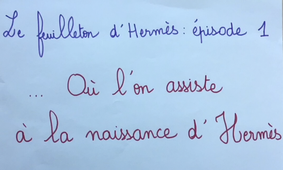 Le feuilleton d'Hermès : épisode 1
... Où l'on assiste
à la naissance d'Hermès